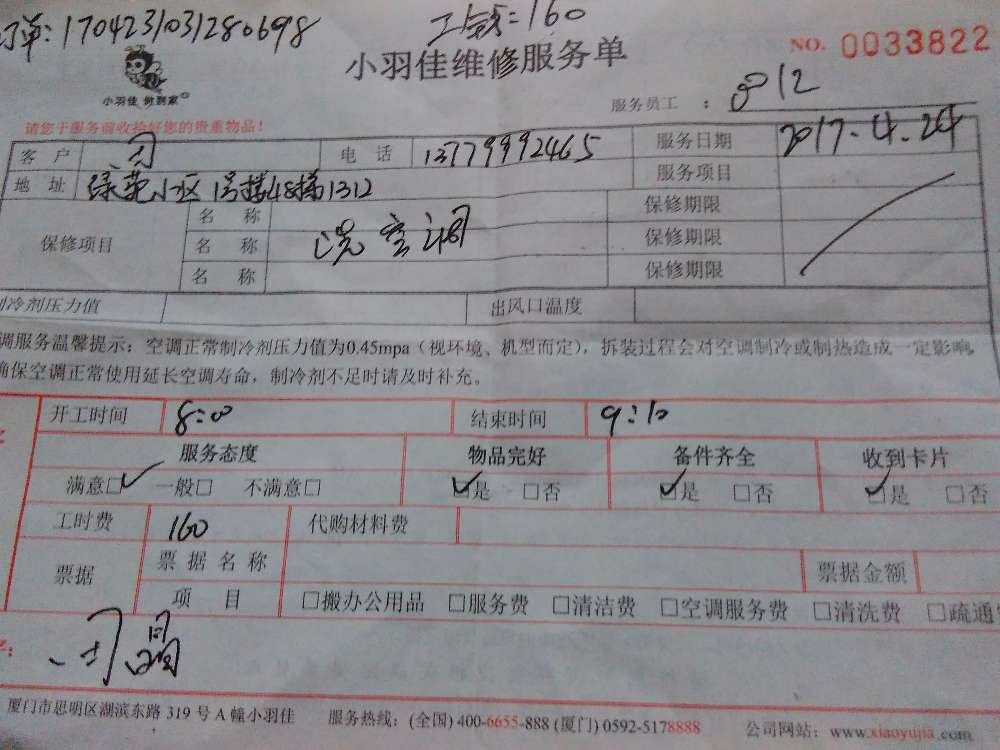 订单: 1704231031280698 工钱: 160
小羽佳维修服务单 NO. 0033822
小羽佳 做到家
服务员工 : 8012
请您于服务前收拾好您的贵重物品!
客户 司 电话 13779992465 服务日期 2017-4.24
地址 绿苑小区1号楼48梯1312 服务项目
保修项目 名称 保修期限
名称 洗空调 保修期限
名称 保修期限
制冷剂压力值 出风口温度
调服务温馨提示: 空调正常制冷剂压力值为0.45mpa (视环境、机型而定), 拆装过程会对空调制冷或制热造成一定影响,
确保空调正常使用延长空调寿命, 制冷剂不足时请及时补充。
开工时间 8:00 结束时间 9:10
服务态度 物品完好 备件齐全 收到卡片
满意☑ 一般□ 不满意□ ☑是 □否 ☑是 □否 ☑是 □否
工时费 160 代购材料费
票据 票据名称 票据金额
项目 □搬办公用品 □服务费 □清洁费 □空调服务费 □清洗费 □疏通
字:
厦门市思明区湖滨东路 319 号 A 幢小羽佳 服务热线: (全国) 400-6655-888 (厦门) 0592-5178888 公司网站: www.xiaoyujia.com